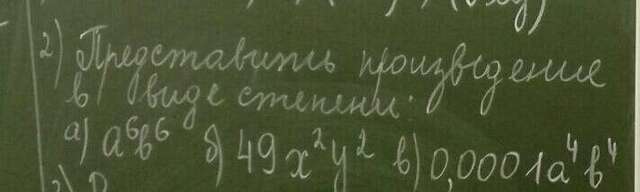 2) Представить произведение
в виде степени:
а) a⁶b⁶ б) 49x²y² в) 0,0001a⁴b⁴